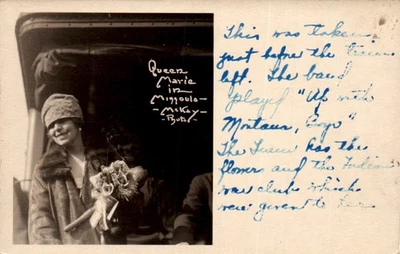 Queen
Marie
in
Missoula-
-McKay-
-Photo-
This was taken
just before the train
left. The band
played "Up with
Montana, Boys"
The Queen has the
flowers and the Indian
war club which
were given to her